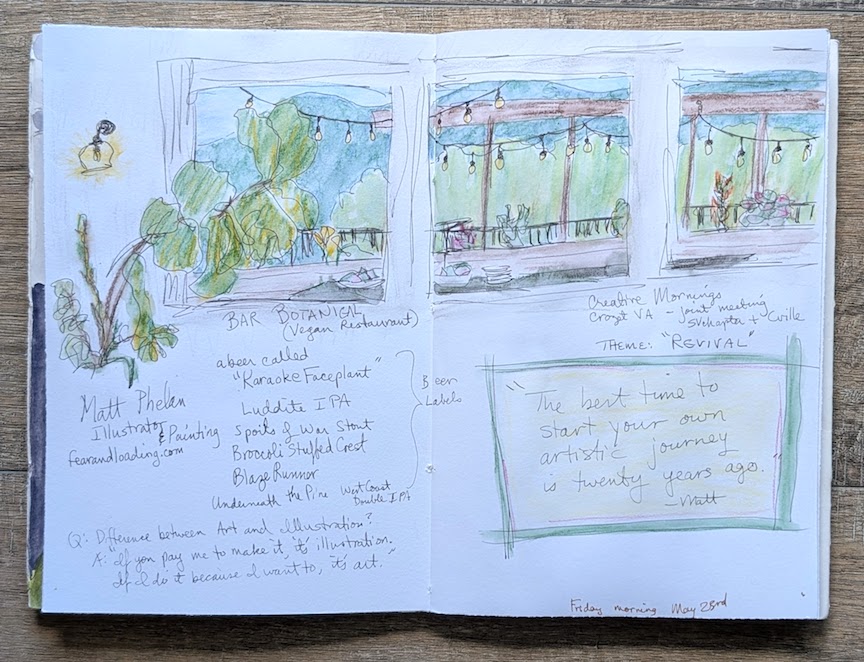 BAR BOTANICAL
(Vegan Restaurant)
a beer called
"Karaoke Faceplant"
Luddite IPA
Spoils of War Stout
Broccoli Stuffed Crest
Blaze Runnor
Underneath the Pine West Coast
Double IPA
Beer
Labels
Matt Phelan
Illustrator
& Painting
fearandloading.com
Q: Difference between Art and Illustration?
A: "If you pay me to make it, it's illustration.
If I do it because I want to, it's art."
Creative Mornings
Crozet VA - joint meeting
+ Cville
THEME: "REVIVAL"
"The best time to
start your own
artistic journey
is twenty years ago."
-Matt
Friday morning May 23rd